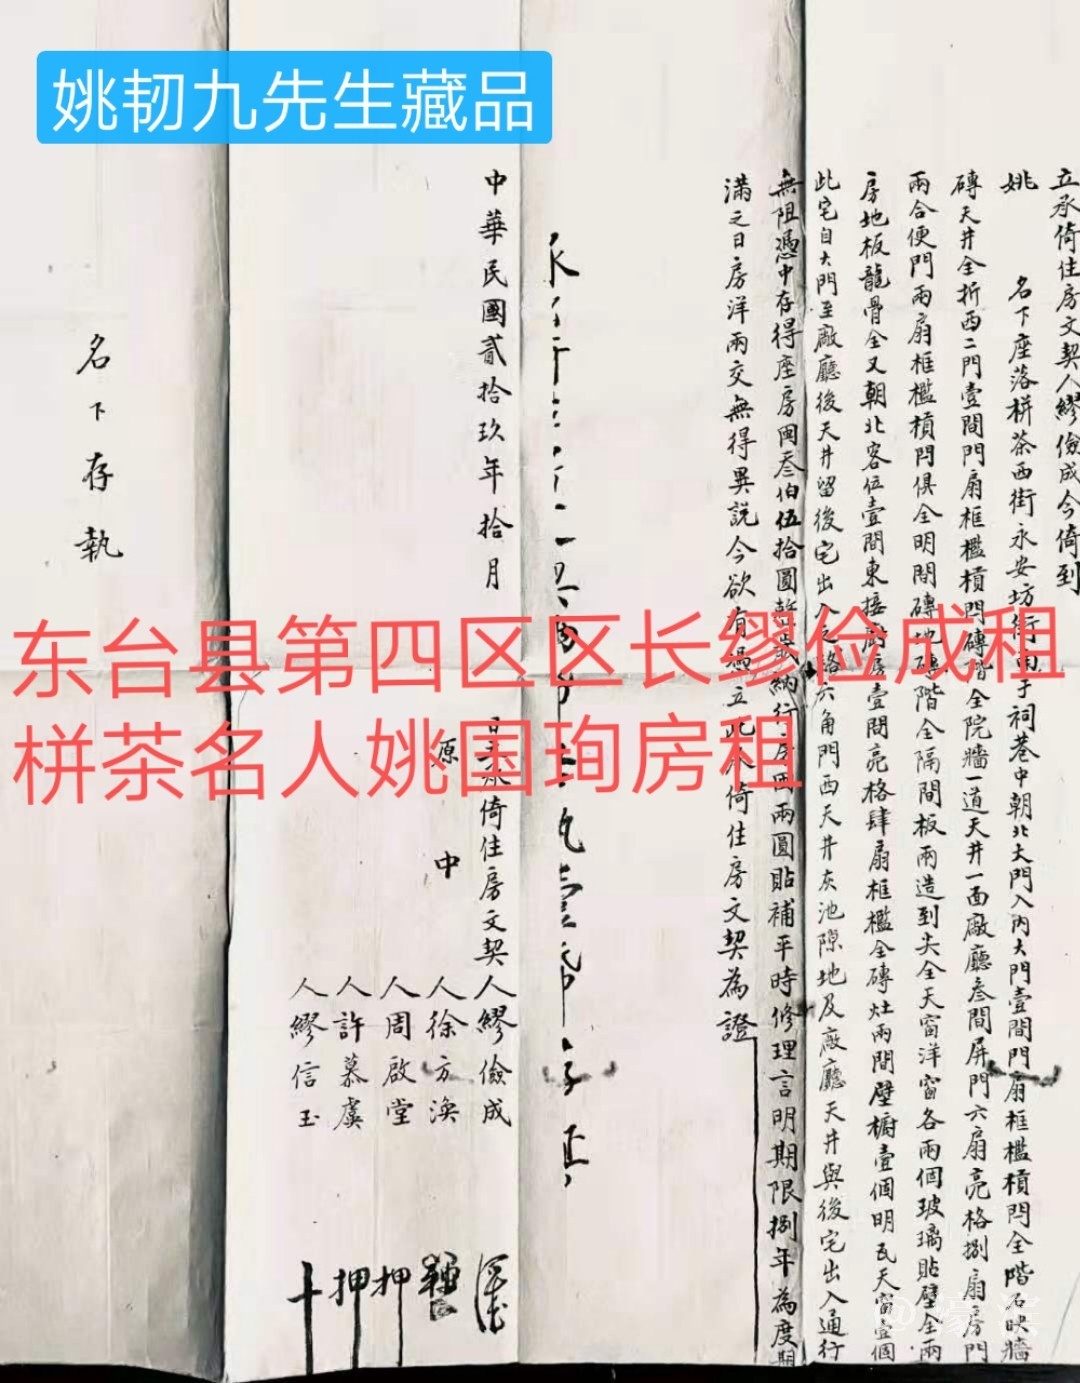 姚韧九先生藏品
东台县第四区区长缪俭成租
栟茶名人姚国珣房租
立承倚住房文契人繆儉成今倚到
姚 名下座落栟茶西街永安坊街南于祠巷中朝北大門入內大門壹間門扇框檻橫閂全階石映牆
磚天井全折西二門壹間門扇框檻橫閂磚階全院牆一道天井一面廠廳叁間屏門六扇亮格捌扇房門
兩合便門兩扇框檻橫閂俱全明間磚地磚階全隔間板兩造到夫全天窗洋窗各兩個玻璃貼壁全兩
房地板龍骨全又朝北客位壹間東接廚房壹間亮格肆扇框檻全磚灶兩間壁櫥壹個明瓦天窗壹個
此宅自大門至廠廳後天井留後宅出入之路六角門西天井灰池隙地及廠廳天井與後宅出入通行
無阻憑中存得座房國叁伯伍拾圓整 納行房國兩圓貼補平時修理言明期限捌年為度期
滿之日房洋兩交無得異說今欲有憑立此承倚住房文契為證
中華民國貳拾玖年拾月 日立承倚住房文契人繆儉成
原中人徐方渙
人周啟堂 押
人許慕虞 押
人繆信玉 十
名下存執